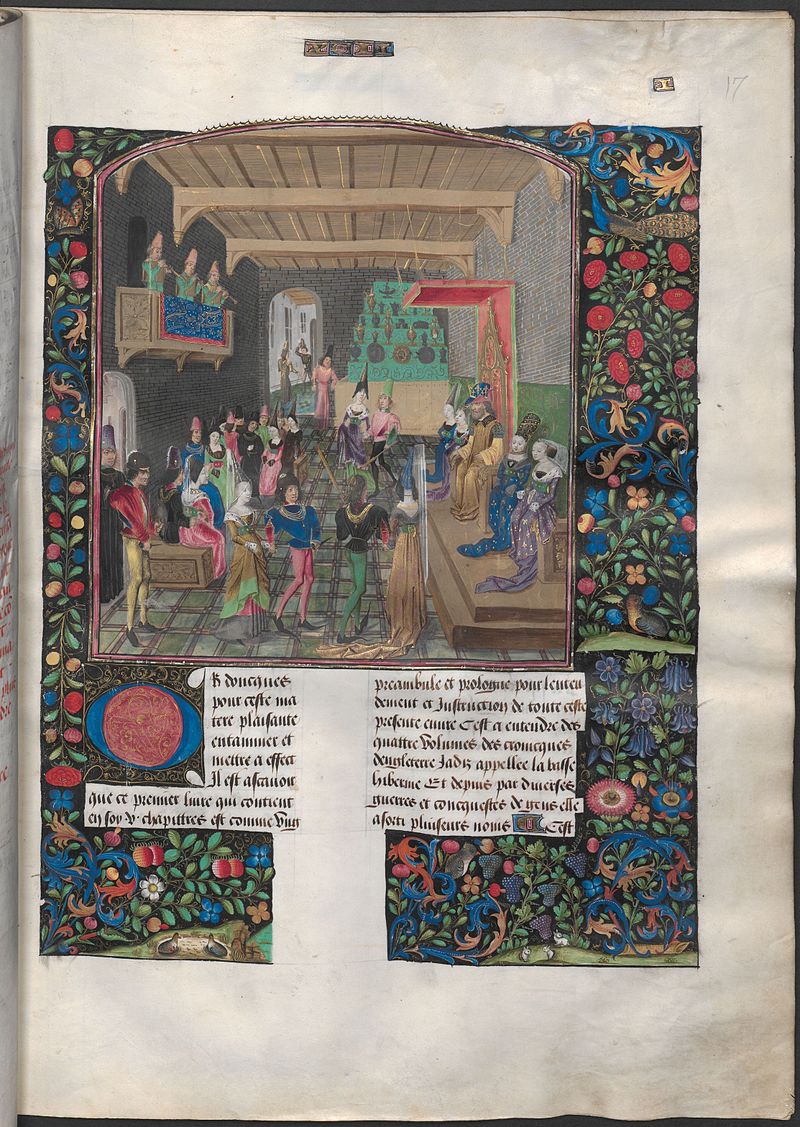 17
R doucques
pour ceste ma
tere plaisante
entammer et
mettre a effect
Il est assauoir
que ce premier liure qui contient
en soy v. chapittres est comme vng
preambule et prologue pour lenten
dement et Instruction de toute ceste
presente euure Cest a entendre des
quattre volumes des cronicques
dengleterre Jadiz appellee la basse
hibernie Et depuis par diuerses
guerres et concquestes de gens elle
a sorti pluiseurs noms Cest